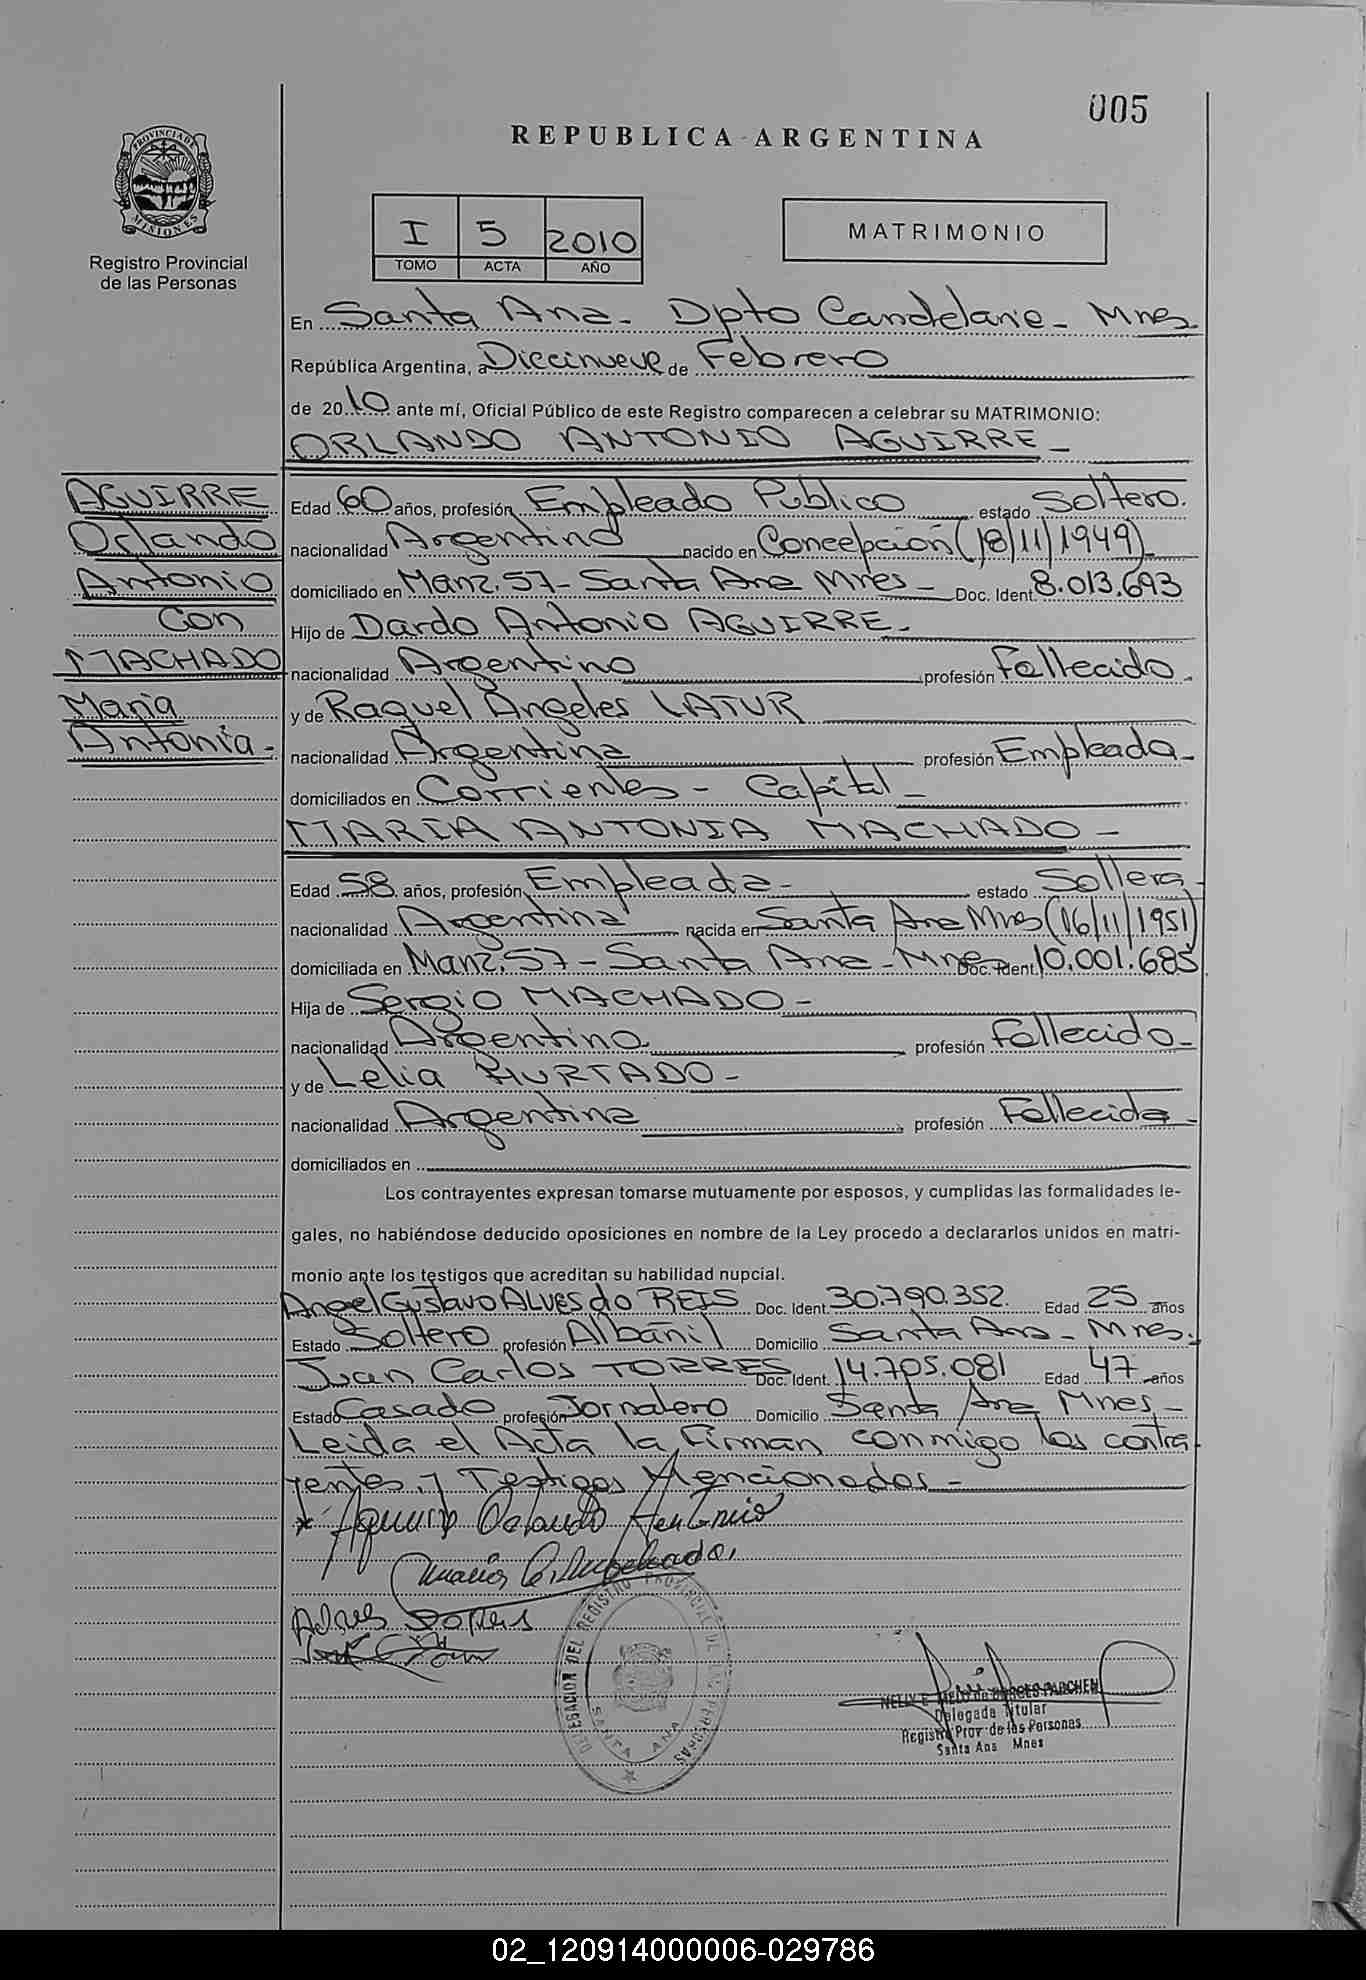 005
REPUBLICA ARGENTINA
PROVINCIA DE MISIONES
Registro Provincial
de las Personas
I 5 2010
TOMO ACTA AÑO
MATRIMONIO
En Santa Ana - Dpto Candelaria - Mnes
República Argentina, a Diecinueve de Febrero
de 2010 ante mí, Oficial Público de este Registro comparecen a celebrar su MATRIMONIO:
ORLANDO ANTONIO AGUIRRE -
AGUIRRE
Orlando
Antonio
Con
MACHADO
Maria
Antonia -
Edad 60 años, profesión Empleado Publico estado Soltero.
nacionalidad Argentino nacido en Concepción (18/11/1949)
domiciliado en Manz. 57 - Santa Ana Mnes - Doc. Ident. 8.013.693
Hijo de Dardo Antonio AGUIRRE -
nacionalidad Argentino profesión Fallecido -
y de Raquel Angeles LATUR
nacionalidad Argentina profesión Empleada -
domiciliados en Corrientes - Capital -
MARIA ANTONIA MACHADO -
Edad 58 años, profesión Empleada - estado Soltera -
nacionalidad Argentina nacida en Santa Ana Mnes (16/11/1951)
domiciliada en Manz. 57 - Santa Ana - Mnes Doc. Ident. 10.001.685
Hija de Sergio MACHADO -
nacionalidad Argentino profesión Fallecido -
y de Lelia HURTADO -
nacionalidad Argentina profesión Fallecida -
domiciliados en
Los contrayentes expresan tomarse mutuamente por esposos, y cumplidas las formalidades le-
gales, no habiéndose deducido oposiciones en nombre de la Ley procedo a declararlos unidos en matri-
monio ante los testigos que acreditan su habilidad nupcial.
Angel Gustavo ALVES do REIS Doc. Ident. 30.790.352 Edad 25 años
Estado Soltero profesión Albañil Domicilio Santa Ana - Mnes.
Juan Carlos TORRES Doc. Ident. 14.705.081 Edad 47 años
Estado Casado profesión Jornalero Domicilio Santa Ana Mnes -
Leida el Acta la Firman conmigo los contra
yentes, y Testigos Mencionados -
x Aguirre Orlando Antonio
DELEGACION DEL REGISTRO PROVINCIAL DE LAS PERSONAS
SANTA ANA
Delegada Titular
Registro Prov. de las Personas
Santa Ana Mnes
02_120914000006-029786